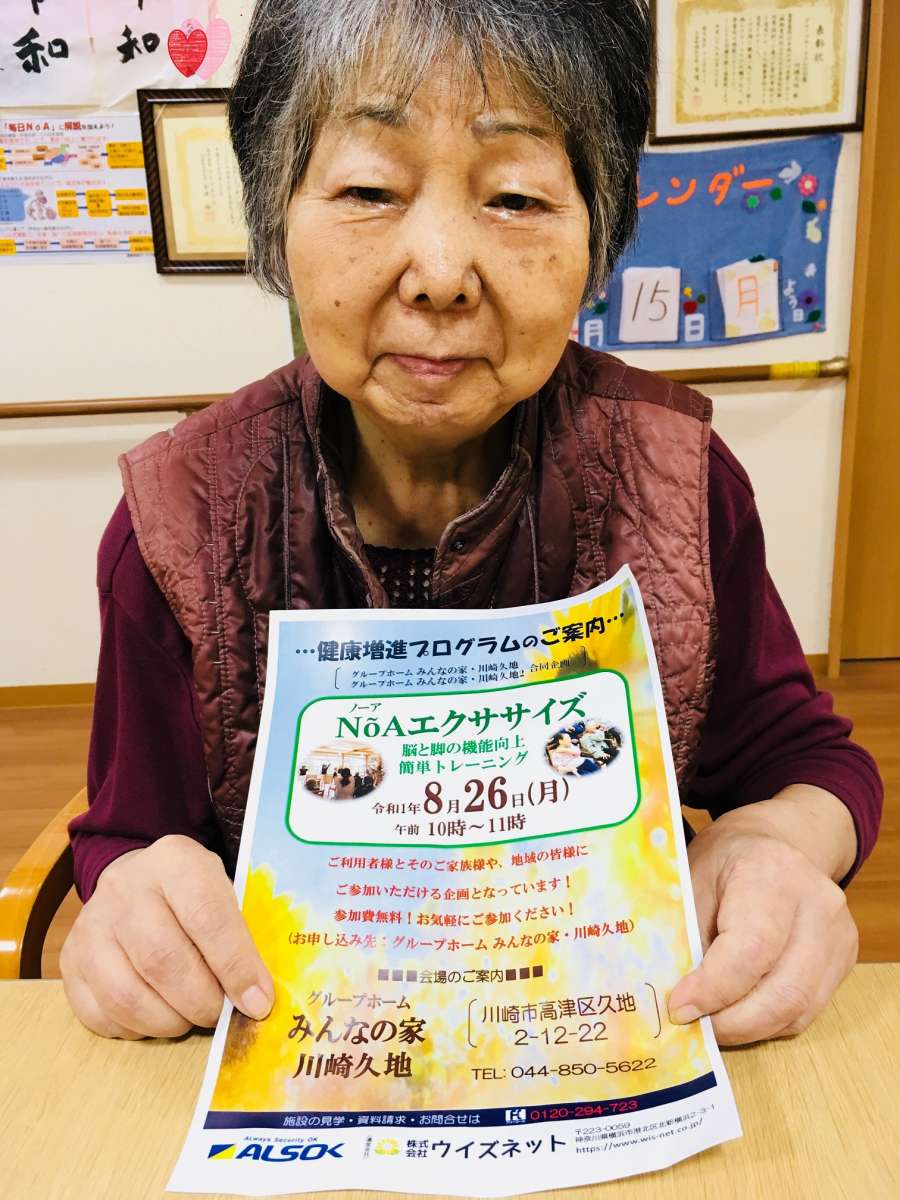 和
和
「毎日NoA」に解説を加えよう!
表彰状
レンダー
月
15
日
月
よう日
…健康増進プログラムのご案内…
グループホーム みんなの家・川崎久地
グループホーム みんなの家・川崎久地2
合同企画
ノーア
NõAエクササイズ
脳と脚の機能向上
簡単トレーニング
令和1年8月26日(月)
午前 10時～11時
ご利用者様とそのご家族様や、地域の皆様に
ご参加いただける企画となっています！
参加費無料！お気軽にご参加ください！
(お申し込み先：グループホーム みんなの家・川崎久地)
■■■会場のご案内■■■
グループホーム
みんなの家
川崎久地
川崎市高津区久地
2-12-22
TEL: 044-850-5622
施設の見学・資料請求・お問合せは 0120-294-723
Always Security OK
ALSOK
(運営会社)
株式会社 ウイズネット
〒223-0059
神奈川県横浜市港北区北新横浜2-3-1
https://www.wis-net.co.jp/